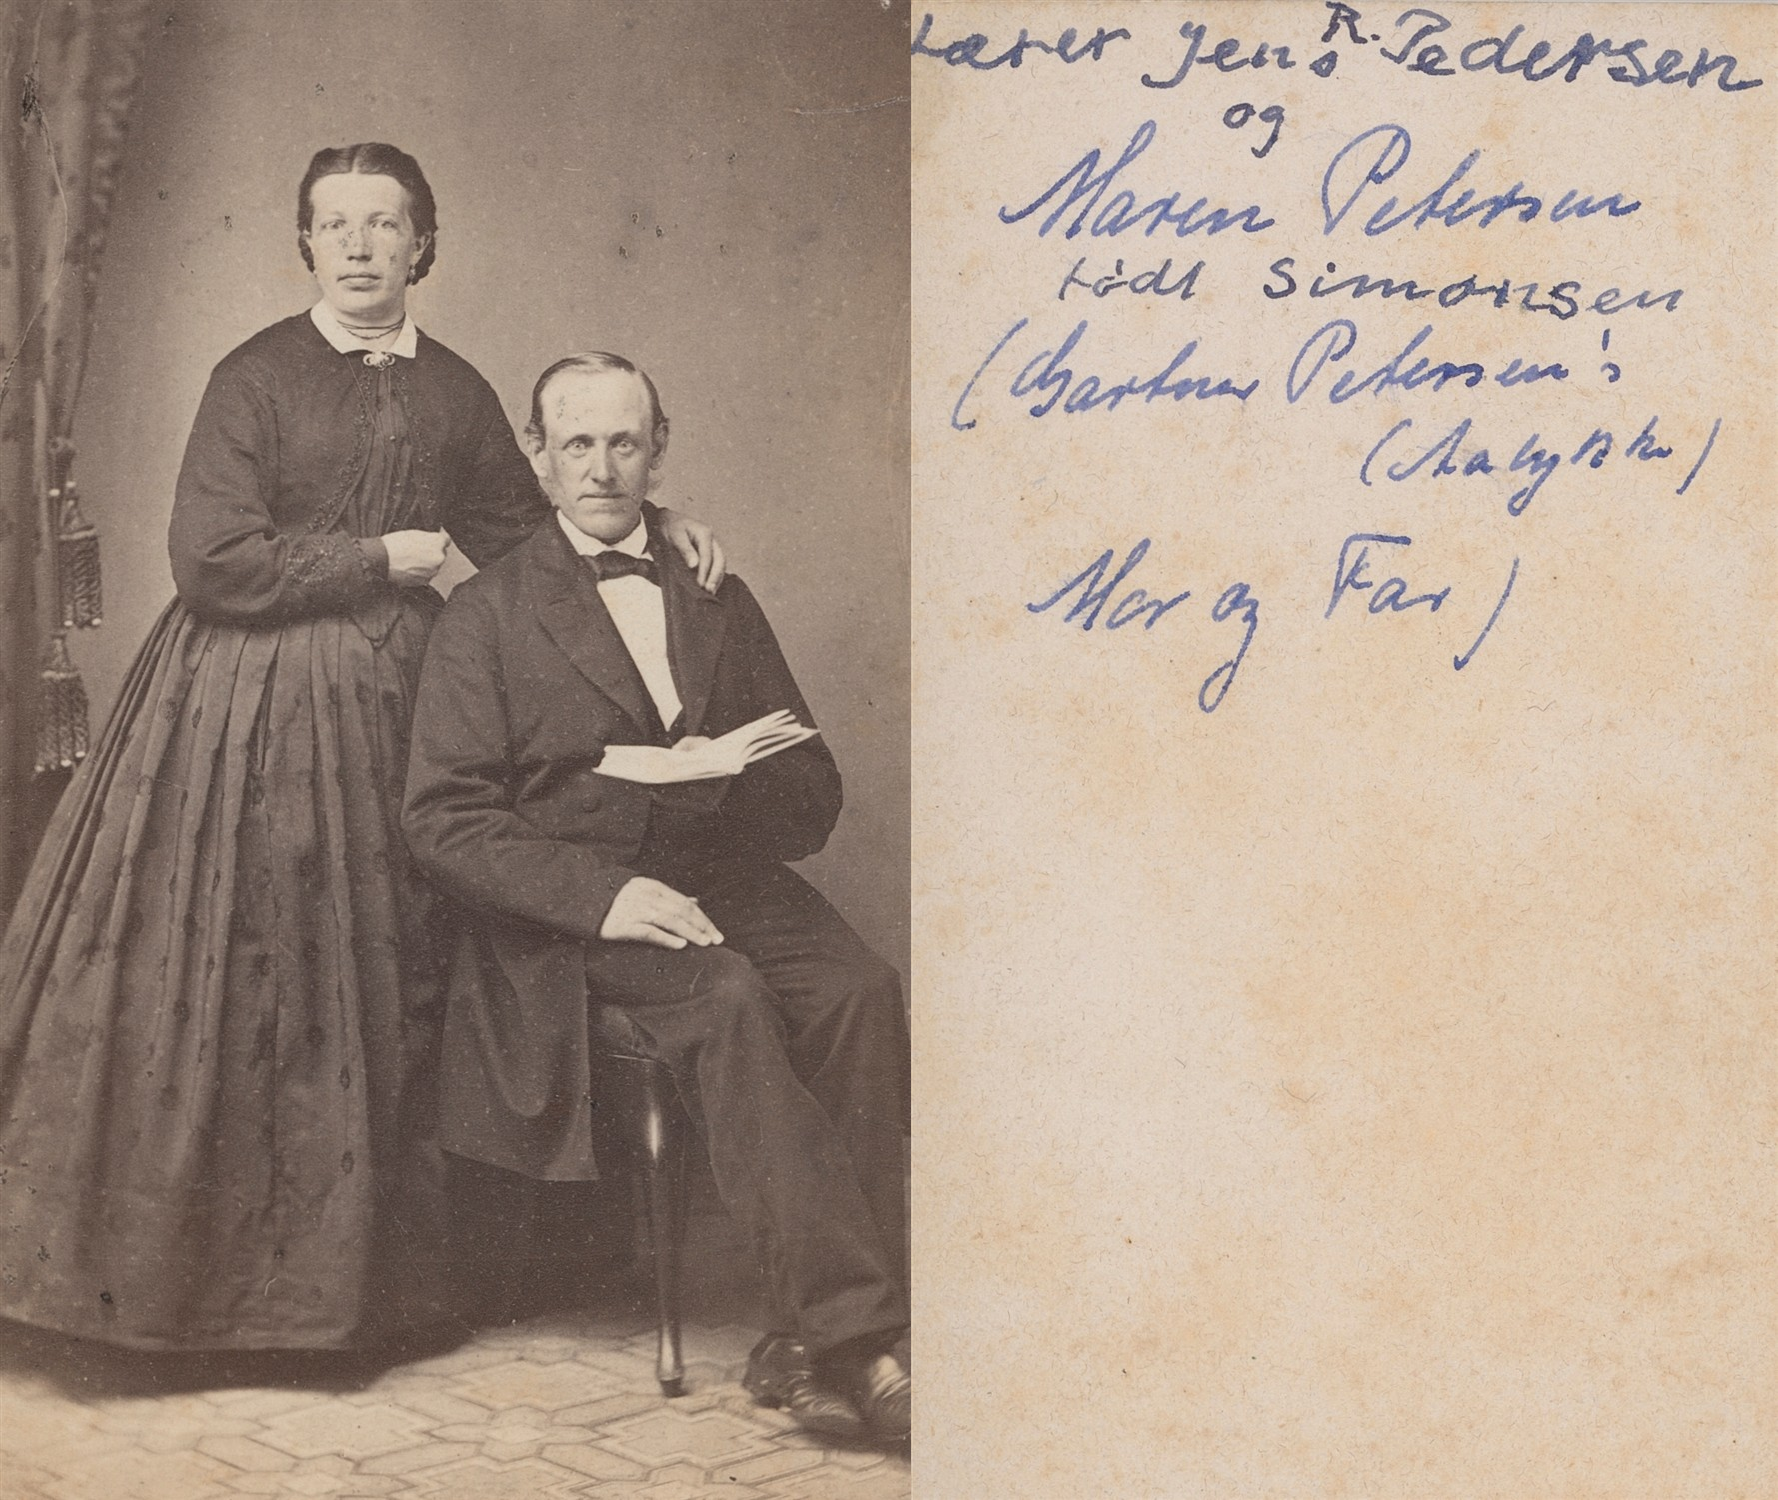 Lærer Jens R. Pedersen
og
Maren Petersen
født Simonsen
(Gartner Petersen's
(Aalykke)
Mor og Far)